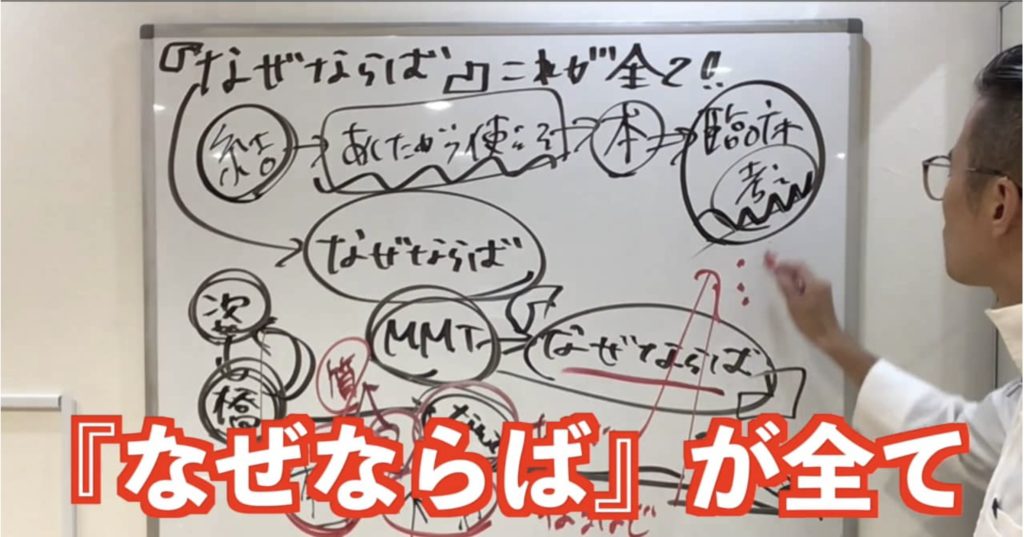 『なぜならば』これが全て!!
結 → あしたから使える → 本 → 臨床
考え
なぜならば
次
MMT なぜならば
質
橋
『なぜならば』が全て